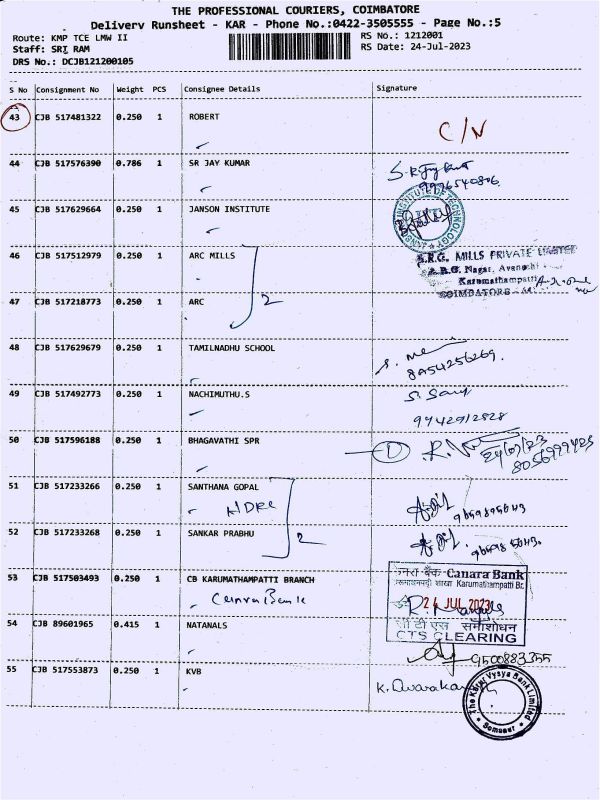 THE PROFESSIONAL COURIERS, COIMBATORE
Delivery Runsheet - KAR - Phone No.:0422-3505555 - Page No.:5
Route: KMP TCE LMW II
RS No.: 1212001
Staff: SRI RAM
RS Date: 24-Jul-2023
DRS No.: DCJB121200105
S No Consignment No Weight PCS Consignee Details Signature
43 CJB 517481322 0.250 1 ROBERT
C/N
44 CJB 517576390 0.786 1 SR JAY KUMAR
45 CJB 517629664 0.250 1 JANSON INSTITUTE
INSTITUTE OF TECHNOLOGY
46 CJB 517512979 0.250 1 ARC MILLS
S.R.G. MILLS PRIVATE LIMITED
Nagar, Avanashi
Karumathampatti
COIMBATORE
47 CJB 517218773 0.250 1 ARC
2
48 CJB 517629679 0.250 1 TAMILNADHU SCHOOL
8A54256269
49 CJB 517492773 0.250 1 NACHIMUTHU.S
9942912828
50 CJB 517596188 0.250 1 BHAGAVATHI SPR
D
24/07/23
8056999423
51 CJB 517233266 0.250 1 SANTHANA GOPAL
52 CJB 517233268 0.250 1 SANKAR PRABHU
2
53 CJB 517503493 0.250 1 CB KARUMATHAMPATTI BRANCH
Canara Bank
केनरा बैंक Canara Bank
शाखा Karumathampatti Br.
24 JUL 2023
सी टी एस समाशोधन
CTS CLEARING
54 CJB 89601965 0.415 1 NATANALS
9500883355
55 CJB 517553873 0.250 1 KVB
K. Dwaraka
The Karur Vysya Bank Limited
Somanur